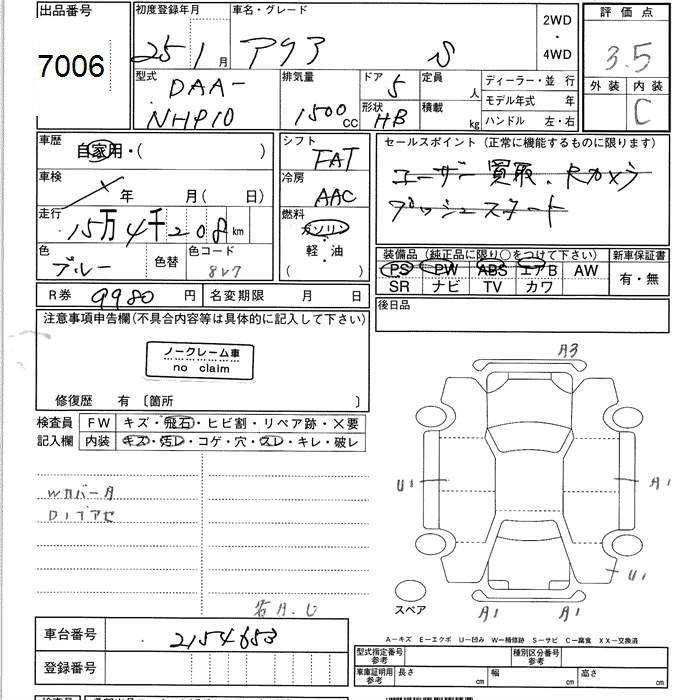 出品番号
7006
初度登録年月
25年 1月
車名・グレード
アクア S
2WD・4WD
評価点
3.5
外装 内装
C
型式
DAA-
NHP10
排気量
1500cc
ドア
5
形状
HB
定員 人
積載 kg
ディーラー・並行
モデル年式 年
ハンドル 左・右
車歴
自家用・( )
車検
年 月( 日)
走行
15万4千208km
色
ブルー
色替
色コード
8L7
シフト
FAT
冷房
AAC
燃料
ガソリン
軽・油
( )
セールスポイント(正常に機能するものに限ります)
ユーザー買取、Rカメラ
プッシュスタート
装備品(純正品に限り○をつけて下さい)
PS PW ABS エアB AW
SR ナビ TV カワ
新車保証書
有・無
後日品
R券 9980円
名変期限 月 日
注意事項申告欄(不具合内容等は具体的に記入して下さい)
ノークレーム車
no claim
修復歴 有 〔箇所 〕
検査員記入欄
FW キズ・飛石・ヒビ割・リペア跡・×要
内装 キズ・汚レ・コゲ・穴・スレ・キレ・破レ
Wカバータ
D1ブアセ
各A.U
A3
U1
A1
U1
A1
A1
スペア
A-キズ E-エクボ U-凹み W-補修跡 S-サビ C-腐食 XX-交換済
車台番号
2154653
登録番号
型式指定番号 参考
種別区分番号 参考
車庫証明用 参考
長さ cm
幅 cm
高さ cm